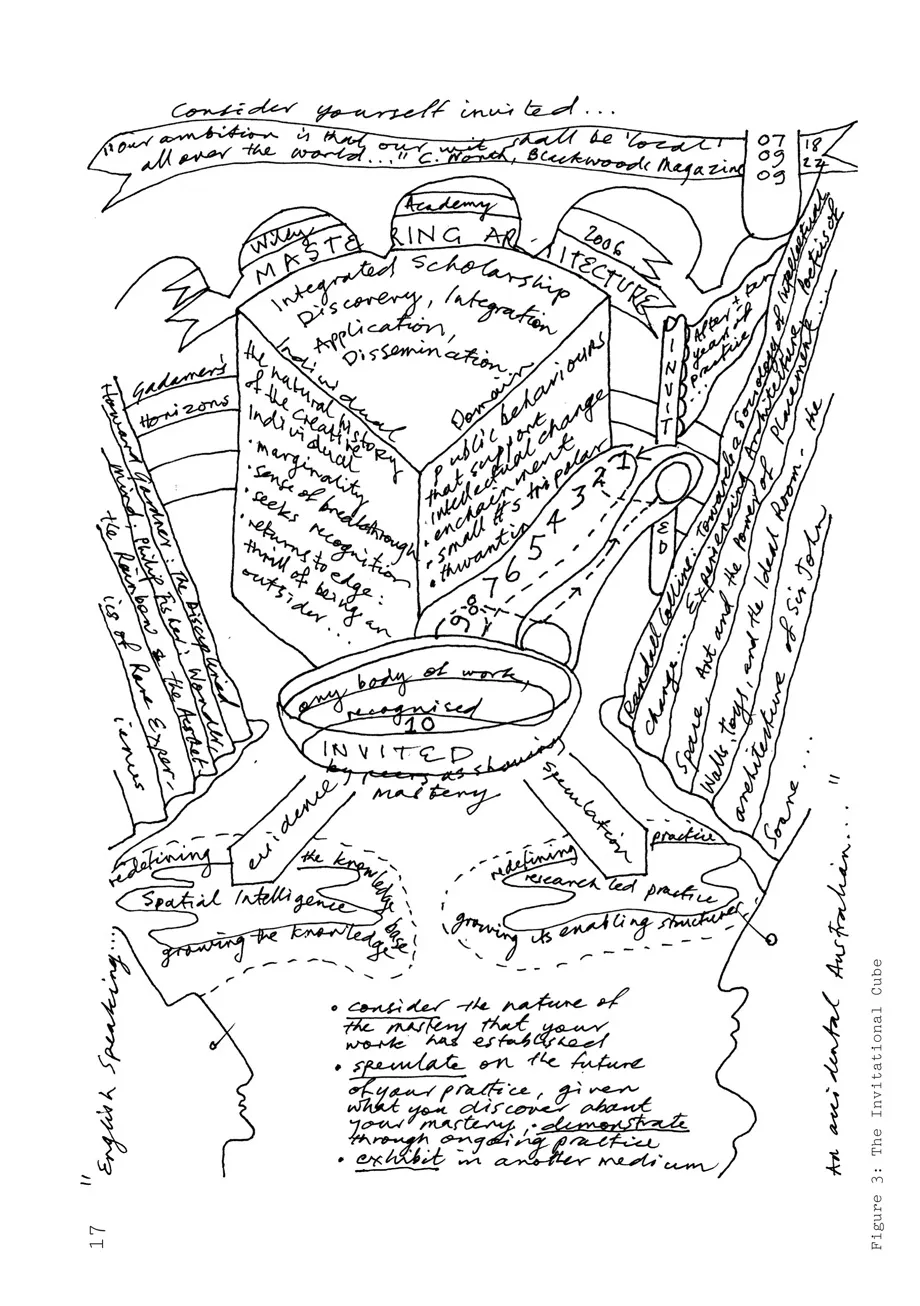 Consider yourself invited...
"our ambition is that our wit shall be 'local'
all over the world..." C. North, Blackwoods Magazine
07
09
09
18
22
Wiley
Academy
2006
MASTERING AR ITECTURE
Integrated Scholarship
Discovery, Integration
Application,
Dissemination
Individual
the natural history
of the creative
Individual
• marginality
• sense of breakthrough
• seeks recognition
• returns to edge:
thrill of being an
outsider...
Domain
public behaviours
that support
intellectual change
• enchainment
• small #s tripolar
Gadamer's
Horizons
INVIT
ED
After + ten
years of
practice
...
1
2
3
4
5
6
7
8
9
Howard Gardner: The Disciplined
Mind. Philip Fisher: Wonder,
the Rainbow & the Aesthet-
ics of Rare Exper-
iences
Randall Collins: Towards a Sociology of Intellectual
Change... Experiencing Architecture Poetics of
Space, Art and the Power of Placement...
Walls, Toys, and the Ideal Room - the
architecture of Sir John
Soane...
any body of work,
recognised
10
INVITED
by peers as showing
mastery
evidence
speculation
redefining
the knowledge base
Spatial Intelligence
growing the knowledge
redefining
practice
research led practice
growing its enabling structures
"English Speaking...
An accidental Australian... "
• consider the nature of
the mastery that your
work has established
• speculate on the future
of your practice, given
what you discover about
your mastery, • demonstrate
through ongoing practice
• exhibit in another medium
17
Figure 3: The Invitational Cube